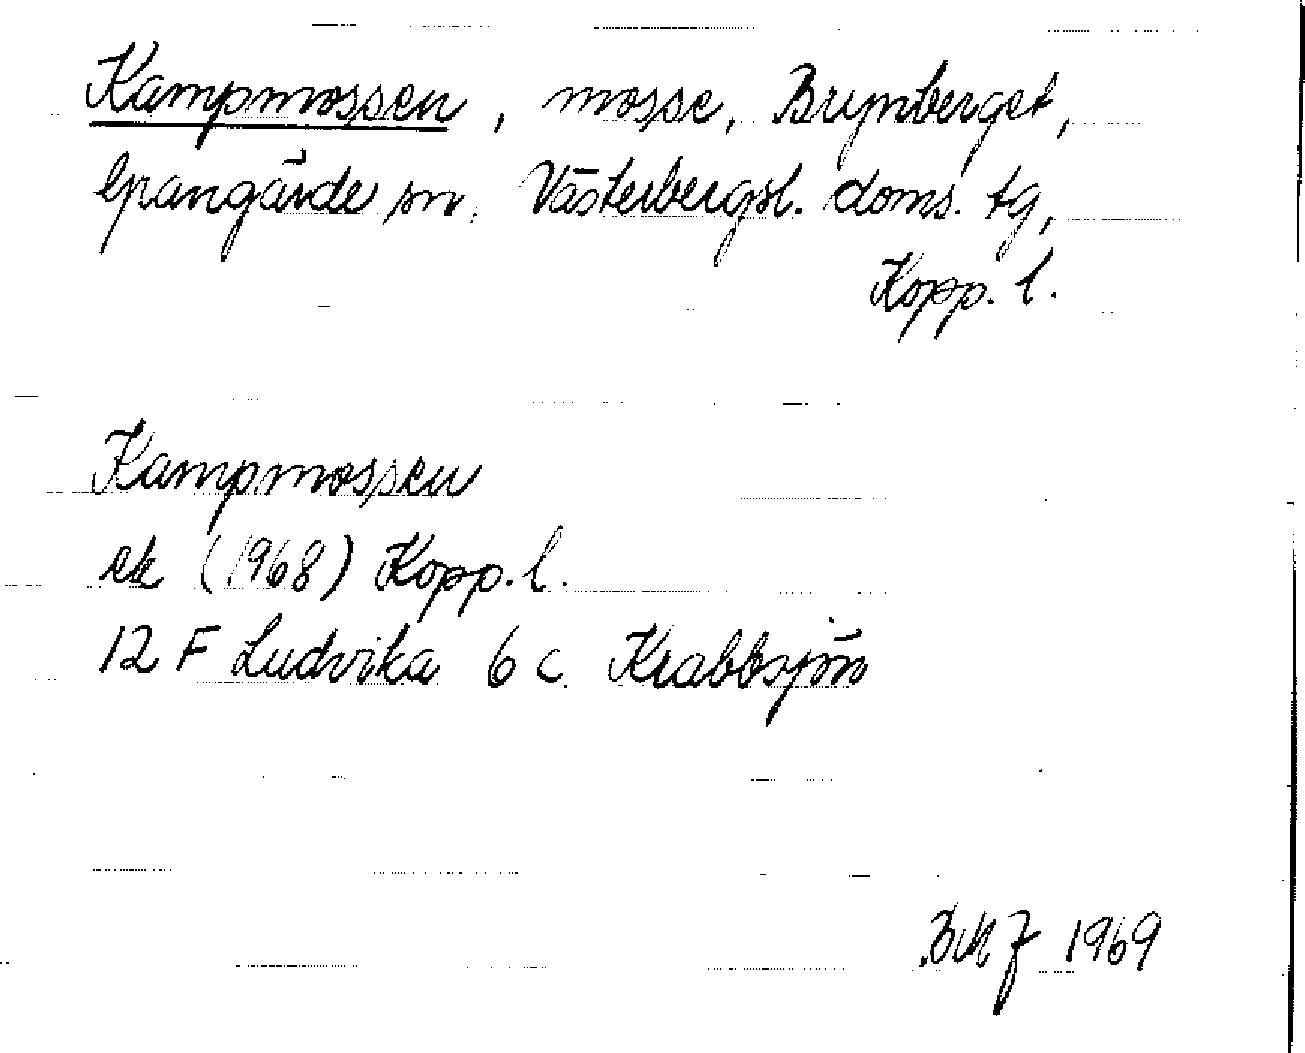 Kampmossen, mosse, Brynberget,
Grangärde sn, Västerbergsl. doms. tg,
Kopp. l.
Kampmossen
ek (1968) Kopp. l.
12 F Ludvika 6 c Krabbsjön
BMJ 1969